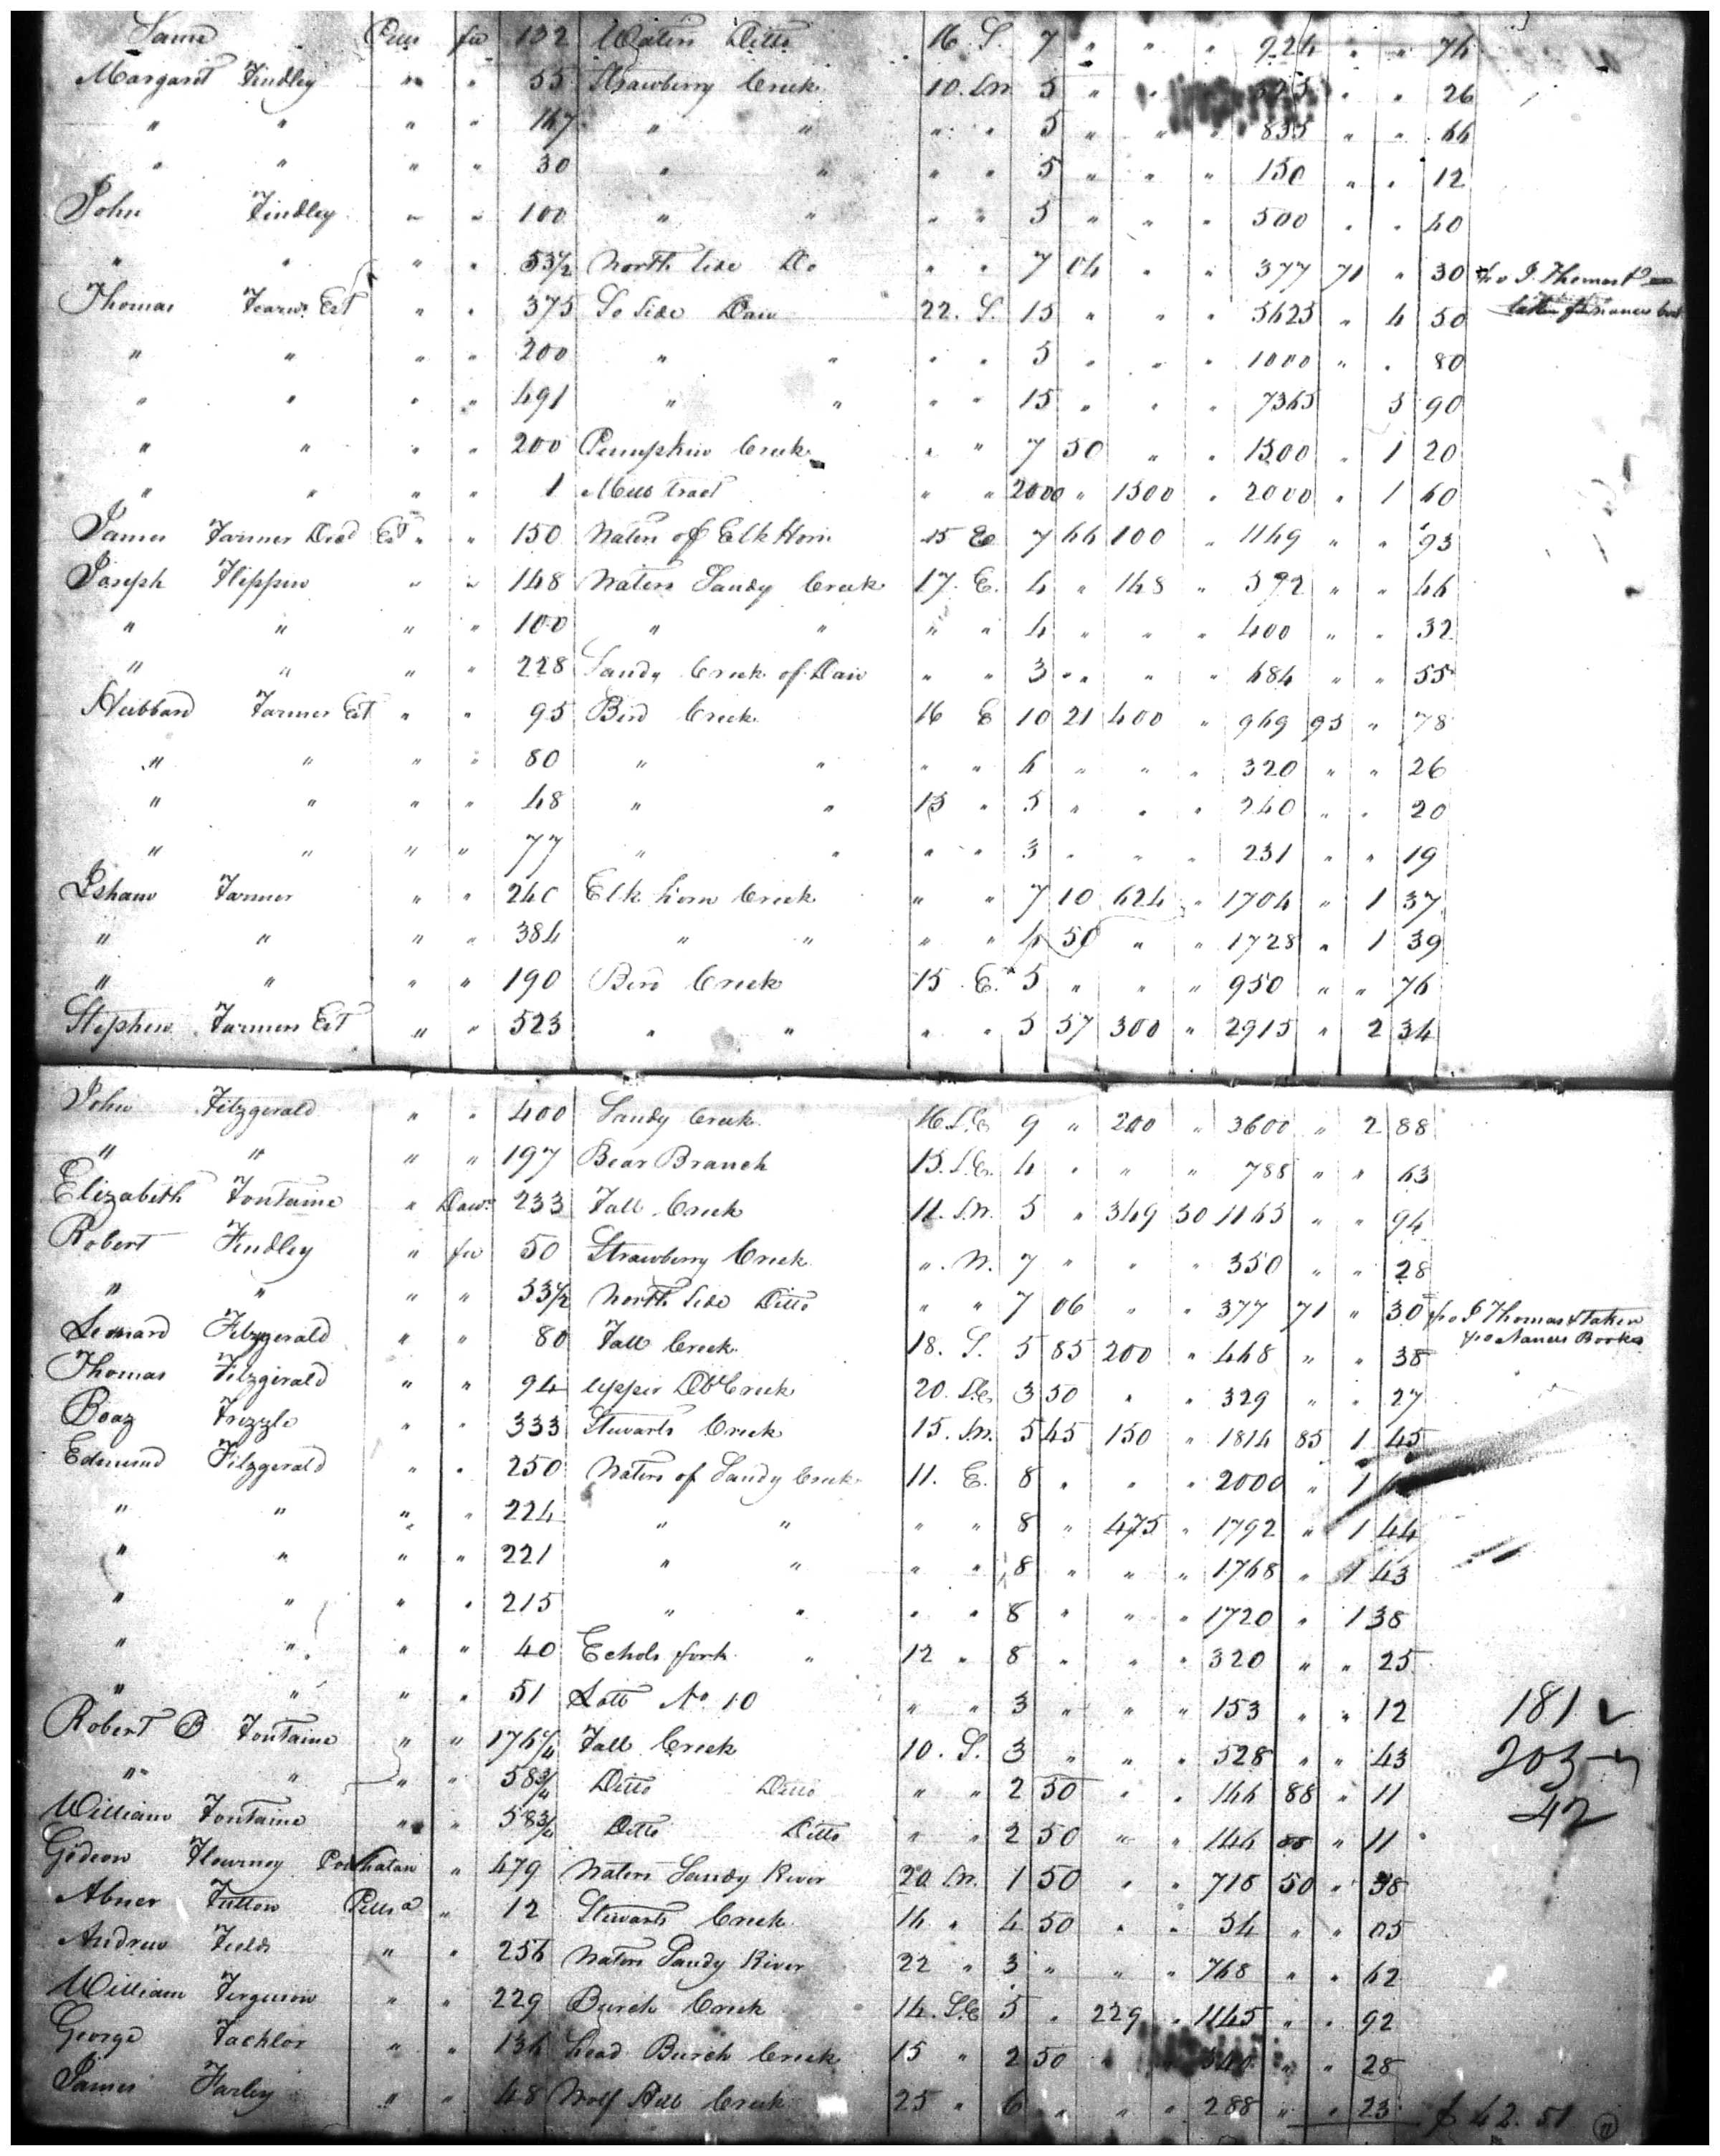 Same Pitts fee 132 Waters Ditto 16. S. 7 " " " 924 " " 74
Margaret Findley " " 55 Strawberry Creek 10. S.N 5 " " " " " 26
" " " " 167 " " " " 5 " " " 835 " " 66
" " " " 30 " " " " 5 " " " 150 " " 12
John Findley " " 100 " " " " 5 " " " 500 " " 40
" " " " 53½ North Side Do " " 7 06 " " 377 71 " 30
Thomas Fearn Est " " 375 So Side Dan 22. S. 15 " " " 5625 " 4 50
" " " " 200 " " " " 5 " " " 1000 " " 80
" " " " 491 " " " " 15 " " " 7365 5 90
" " " " 200 Pumpkin Creek " " 7 50 " " 1500 " 1 20
" " " " 1 Mill tract " " 2000 " 1500 " 2000 " 1 60
James Farmer Decd Est " " 150 Waters of Elk Horn 15 E 7 66 100 " 1149 " " 93
Joseph Flippin " " 148 Waters Sandy Creek 17. E. 4 " 148 " 592 " " 46
" " " " 100 " " " " 4 " " " 400 " " 32
" " " " 228 Sandy Creek of Dan " " 3 " " " 684 " " 55
Hubbard Farmer Est " " 95 Bird Creek 16 E 10 21 400 " 969 95 " 78
" " " " 80 " " " " 4 " " " 320 " " 26
" " " " 48 " " 15 " 5 " " " 240 " " 20
" " " " 77 " " " " 3 " " " 231 " " 19
Isham Farmer " " 240 Elk horn Creek " " 7 10 624 " 1704 " 1 37
" " " " 384 " " " " 4 50 " " 1728 " 1 39
" " " " 190 Bird Creek 15 E. 5 " " " 950 " " 76
Stephen Farmers Est " " 523 " " " " 5 57 300 " 2915 " 2 34
John Fitzgerald " " 400 Sandy Creek 16. S.E 9 " 200 " 3600 " 2 88
" " " " 197 Bear Branch 15. S.E. 4 " " " 788 " " 63
Elizabeth Fontaine " Dow. 233 Fall Creek 11. S.N. 5 " 349 50 1165 " " 94
Robert Findley " fee 50 Strawberry Creek ". N. 7 " " " 350 " " 28
" " " " 53½ North Side Ditto " " 7 06 " " 377 71 " 30
Leonard Fitzgerald " " 80 Fall Creek 18. S. 5 85 200 " 468 " " 38
Thomas Fitzgerald " " 94 upper Dbl Creek 20. S.E 3 50 " " 329 " " 27
Boaz Frizzle " " 333 Stewarts Creek 15. S.N. 5 45 150 " 1814 85 1 45
Edmund Fitzgerald " " 250 Waters of Sandy Creek 11. E. 8 " " " 2000 " 1
" " " " 224 " " " " 8 " 475 " 1792 " 1 44
" " " " 221 " " " " 8 " " " 1768 " 1 43
" " " " 215 " " " " 8 " " " 1720 " 1 38
" " " " 40 Echols fork " 12 " 8 " " " 320 " " 25
" " " " 51 Lott No 10 " " 3 " " " 153 " " 12
181
Robert B Fontaine " " 176¼ Fall Creek 10. S. 3 " " " 528 " " 43
203
" " " " 58¾ Ditto Ditto " " 2 50 " " 146 88 " 11
42
William Fontaine " " 58¾ Ditto Ditto " " 2 50 " " 146 88 " 11
Gideon Flournoy Powhatan " 479 Waters Sandy River 20. S.N. 1 50 " " 718 50 " 38
Abner Fulton Pittsa " 12 Stewarts Creek 14 " 4 50 " " 54 " " 05
Andrew Fields " " 256 Waters Sandy River 22 " 3 " " " 768 " " 62
William Ferguson " " 229 Burch Creek 14. S.E 5 " 229 " 1145 " " 92
George Fachlor " " 136 head Burch Creek 15 " 2 50 " " 340 " " 28
James Farley " " 48 Wolf Hill Creek 25 " 6 " " " 288 " " 23 $ 42. 51